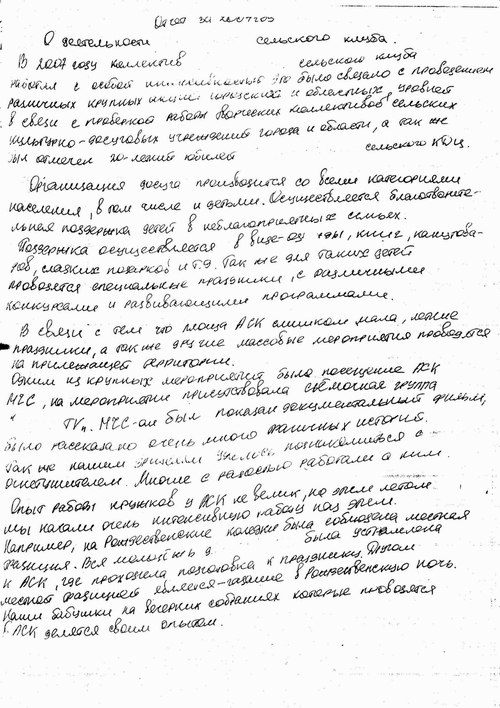 Отчет за 2007 год
О деятельности сельского клуба.
В 2007 году коллектив сельского клуба
работал с особой интенсивностью это было связано с проведением
различных крупных акций городских и областных уровней
в связи с проверкой работы творческих коллективов сельских
культурно-досуговых учреждений города и области, а так же
был отмечен 20-летний юбилей сельского КДЦ.
Организация досуга производится со всеми категориями
населения, в том числе и детьми. Осуществляется благотворите-
льная поддержка детей в неблагоприятных семьях.
Поддержка осуществляется в виде одежды, книг, канцтова-
ров, сладких подарков и т.д. Так же для таких детей
проводятся специальные праздники, с различными
конкурсами и развивающими программами.
В связи с тем что площадь АСК слишком мала, летние
праздники, а так же другие массовые мероприятия проводятся
на прилегающей территории.
Одним из крупных мероприятий было посещение АСК
МЧС, на мероприятии присутствовала съемочная группа
ТК МЧС-ом был показан документальный фильм,
было рассказано очень много различных историй.
Так же нашим зрителям удалось познакомиться с
огнетушителем. Многие с радостью работали с ним.
Опыт работы кружков у АСК не велик, но этим летом
мы начали очень интенсивную работу над этим.
Например, на Рождественские колядки была соблюдена местная
традиция. Вся молодежь д. была
к АСК, где проходила подготовка к празднику. Другой
местной традицией является гадание в Рождественскую ночь.
Наши бабушки на вечерних собраниях которые проводятся
в АСК делятся своим опытом.